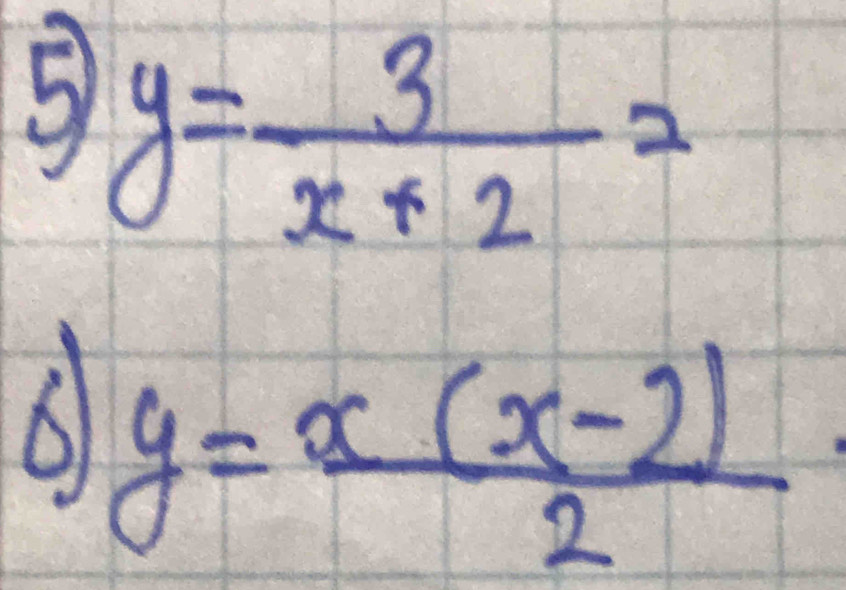 5) y = 3 / (x + 2) =
6) y = x (x - 2) / 2